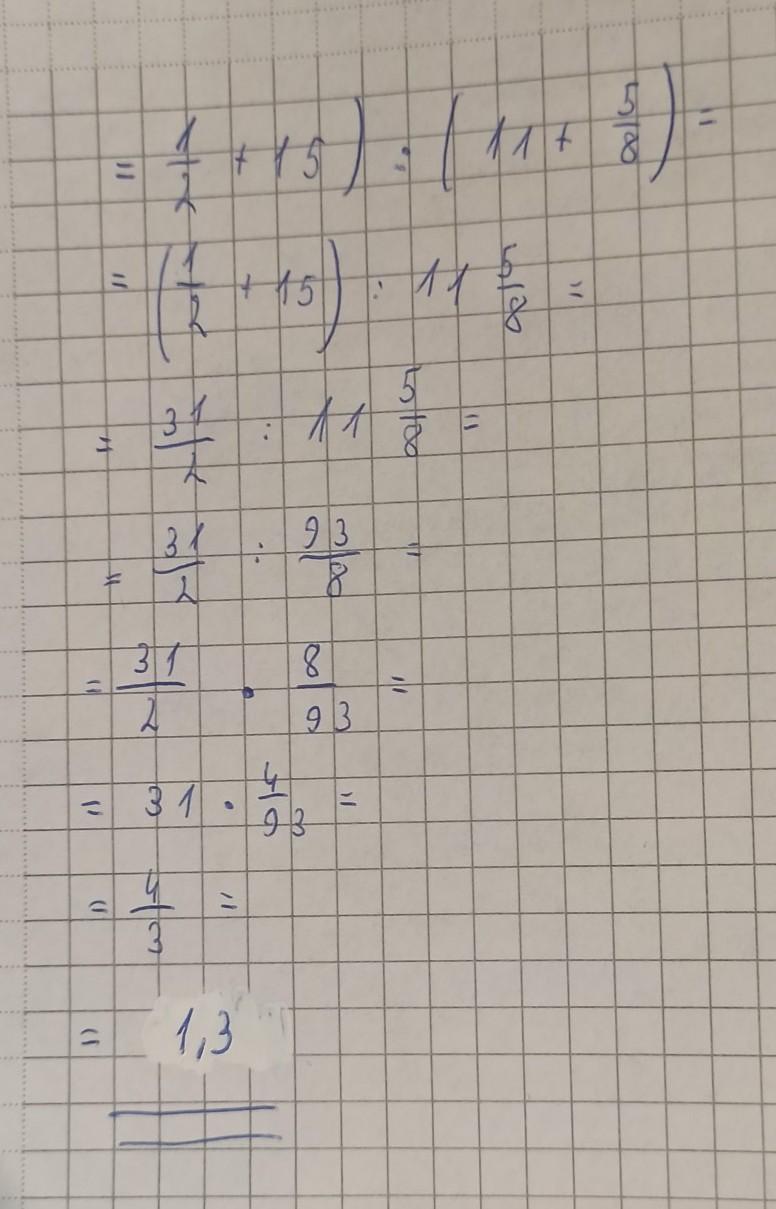 = 1/2 + 15) : (11 + 5/8) =
= (1/2 + 15) : 11 5/8 =
= 31/2 : 11 5/8 =
= 31/2 : 93/8 =
= 31/2 · 8/93 =
= 31 · 4/93 =
= 4/3 =
= 1,3